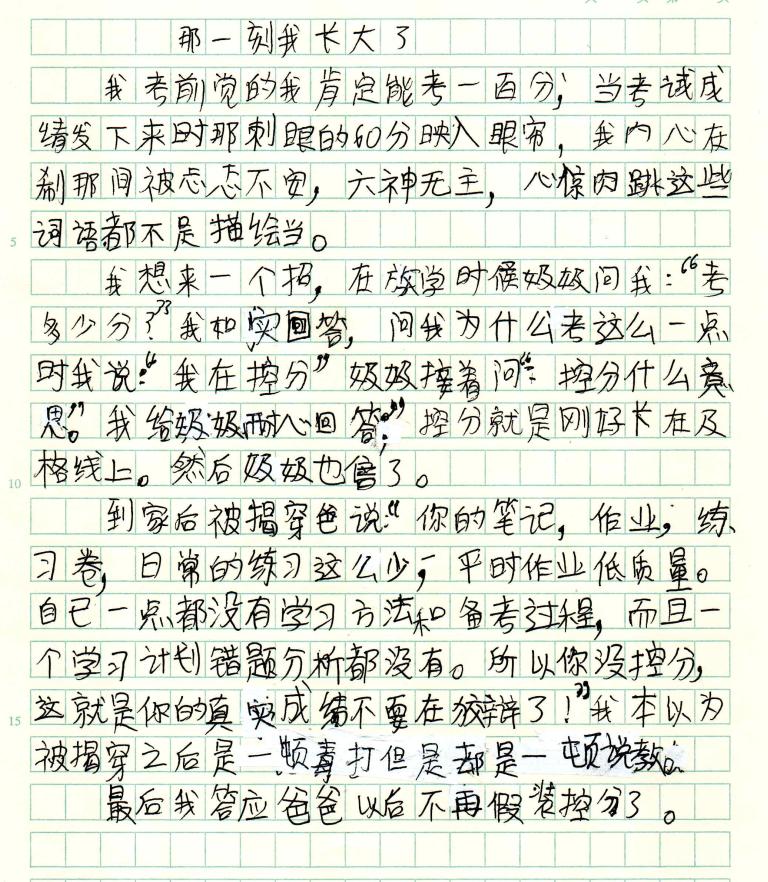 那一刻我长大了
我考前觉的我肯定能考一百分，当考试成
绩发下来时那刺眼的60分映入眼帘，我内心在
刹那间被忐忑不安，六神无主，心惊肉跳这些
词语都不足描绘当。
我想来一个招，在放学时候奶奶问我：“考
多少分？”我如实回答，问我为什么考这么一点
时我说：“我在控分”奶奶接着问“：控分什么意
思。”我给奶奶耐心回答：“控分就是刚好卡在及
格线上。然后奶奶也信了。
到家后被揭穿爸说：“你的笔记，作业，练
习卷，日常的练习这么少，平时作业低质量。
自己一点都没有学习方法和备考过程，而且一
个学习计划错题分析都没有。所以你没控分，
这就是你的真实成绩不要在狡辩了！”我本以为
被揭穿之后是一顿毒打但是却是一顿说教。
最后我答应爸爸以后不再假装控分了。
5
10
15